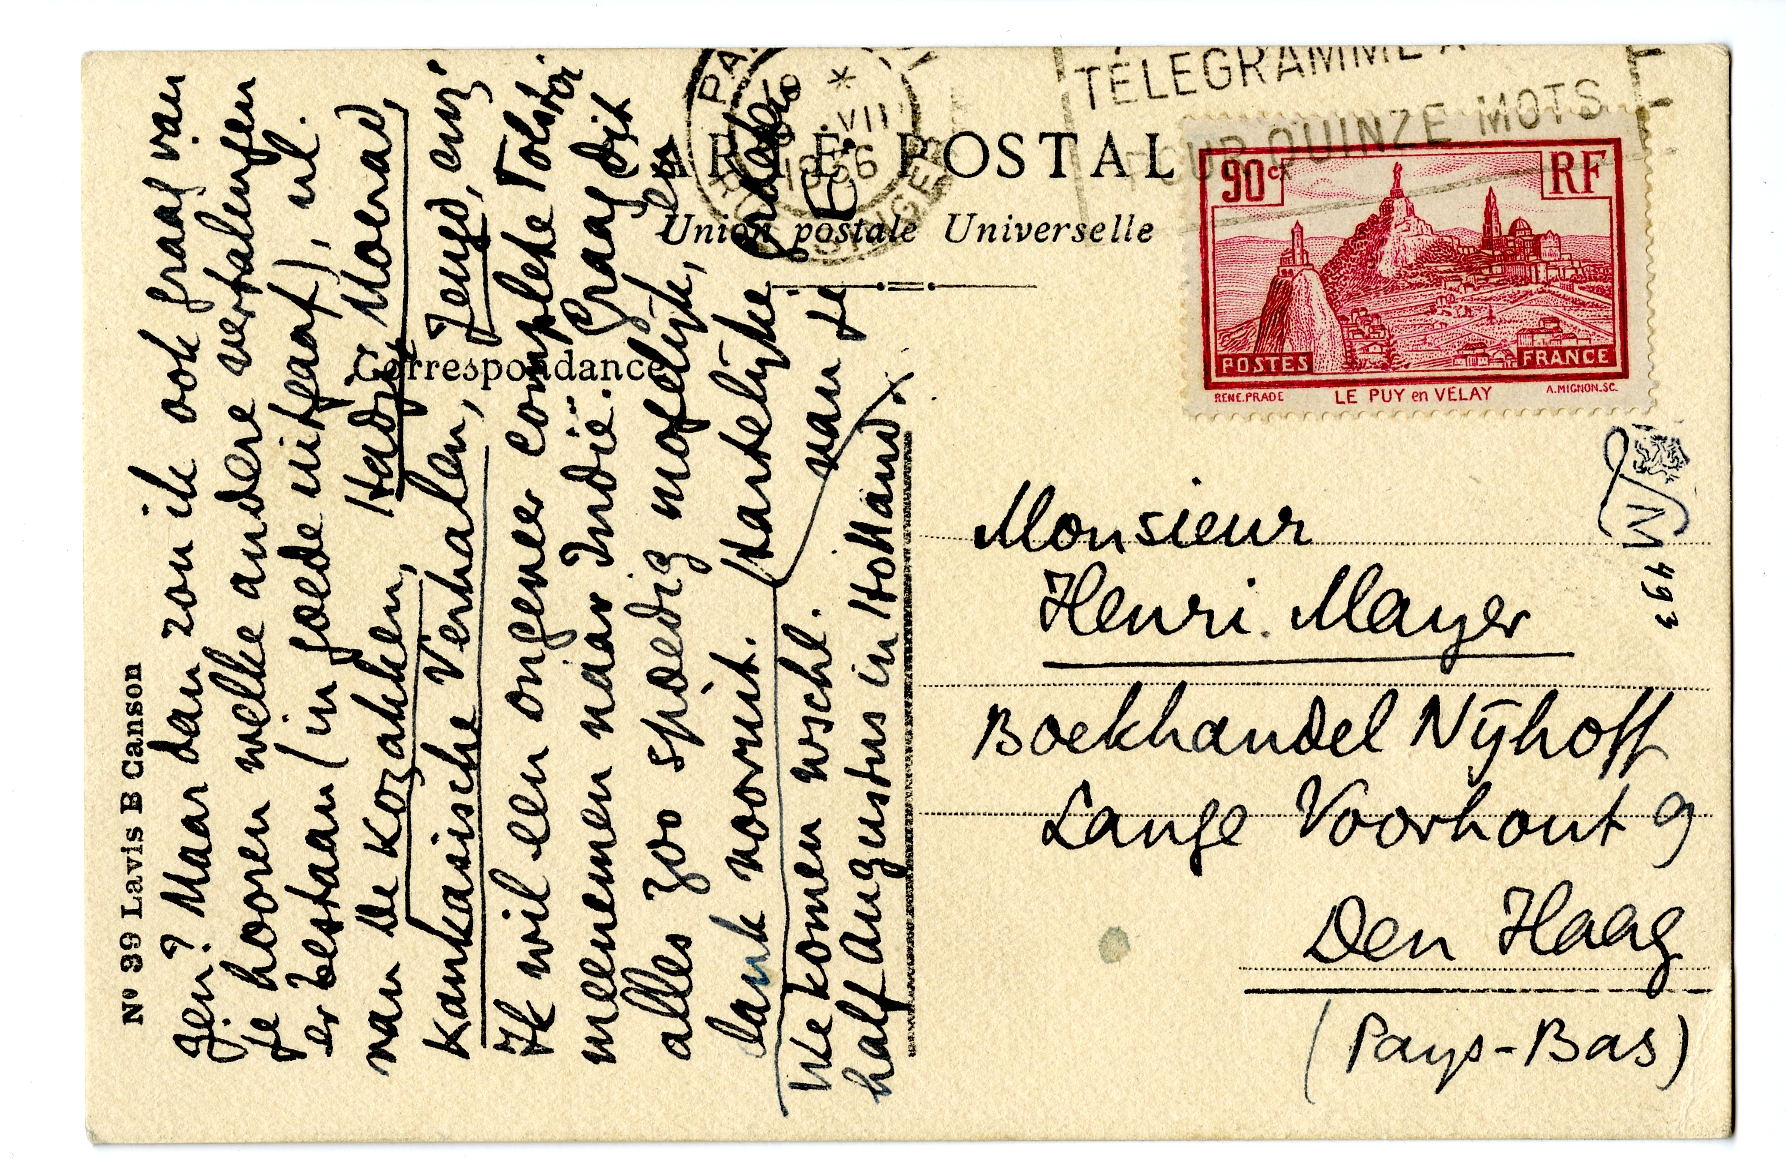 CARTE POSTALE
Union postale Universelle
Correspondance
Nº 39 Lavis B Canson
TÉLÉGRAMME
POUR QUINZE MOTS
PA
18 *
VII
1936
90c
RF
POSTES
FRANCE
RENE.PRADE
LE PUY en VELAY
A.MIGNON.SC.
zijn? Maar dan zou ik ook graag van
je hooren welke andere vertalingen
er bestaan (in goede uitgaaf), nl.
van de Kozakken, Hadji Moerad,
Kaukasische Verhalen, Jeugd, enz.
Ik wil een ongeveer complete Tolstoi
meenemen naar Indië. Graag dit
alles zoo spoedig mogelijk, en
dank vooruit. Hartelijke groeten
van je
E
We komen wschl.
half Augustus in Holland.
Monsieur
Henri Mayer
Boekhandel Nijhoff
Lange Voorhout 9
Den Haag
(Pays-Bas)
M 493